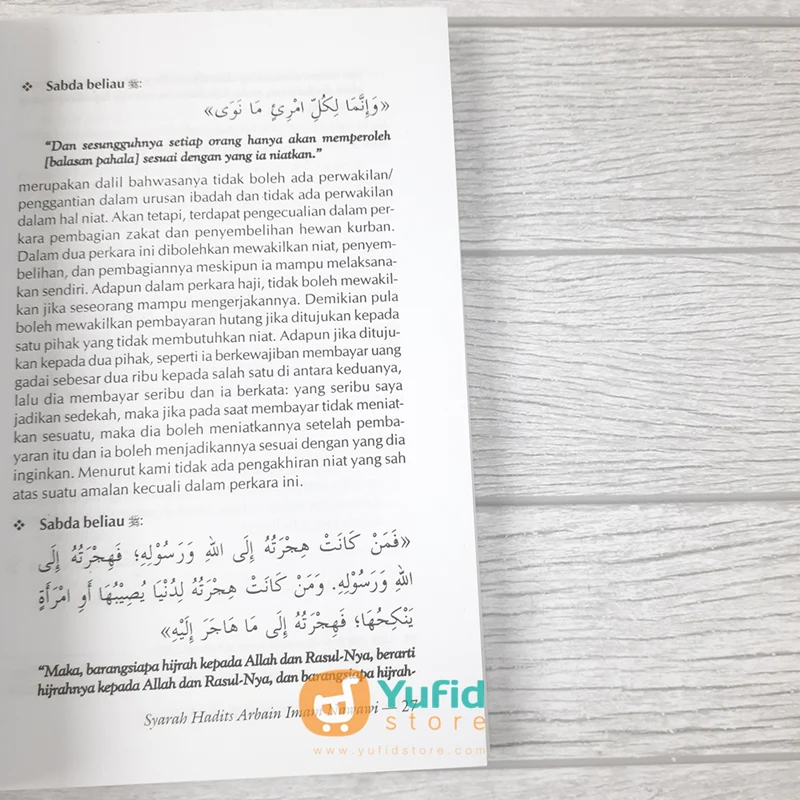 ❖ Sabda beliau ﷺ:
«وَإِنَّمَا لِكُلِّ امْرِئٍ مَا نَوَى»
“Dan sesungguhnya setiap orang hanya akan memperoleh
[balasan pahala] sesuai dengan yang ia niatkan.”
merupakan dalil bahwasanya tidak boleh ada perwakilan/
penggantian dalam urusan ibadah dan tidak ada perwakilan
dalam hal niat. Akan tetapi, terdapat pengecualian dalam per-
kara pembagian zakat dan penyembelihan hewan kurban.
Dalam dua perkara ini dibolehkan mewakilkan niat, penyem-
belihan, dan pembagiannya meskipun ia mampu melaksana-
kan sendiri. Adapun dalam perkara haji, tidak boleh mewakil-
kan jika seseorang mampu mengerjakannya. Demikian pula
boleh mewakilkan pembayaran hutang jika ditujukan kepada
satu pihak yang tidak membutuhkan niat. Adapun jika dituju-
kan kepada dua pihak, seperti ia berkewajiban membayar uang
gadai sebesar dua ribu kepada salah satu di antara keduanya,
lalu dia membayar seribu dan ia berkata: yang seribu saya
jadikan sedekah, maka jika pada saat membayar tidak meniat-
kan sesuatu, maka dia boleh meniatkannya setelah pemba-
yaran itu dan ia boleh menjadikannya sesuai dengan yang dia
inginkan. Menurut kami tidak ada pengakhiran niat yang sah
atas suatu amalan kecuali dalam perkara ini.
❖ Sabda beliau ﷺ:
«فَمَنْ كَانَتْ هِجْرَتُهُ إِلَى اللهِ وَرَسُوْلِهِ؛ فَهِجْرَتُهُ إِلَى
اللهِ وَرَسُوْلِهِ. وَمَنْ كَانَتْ هِجْرَتُهُ لِدُنْيَا يُصِيْبُهَا أَوِ امْرَأَةٍ
يَنْكِحُهَا؛ فَهِجْرَتُهُ إِلَى مَا هَاجَرَ إِلَيْهِ»
“Maka, barangsiapa hijrah kepada Allah dan Rasul-Nya, berarti
hijrahnya kepada Allah dan Rasul-Nya, dan barangsiapa hijrah-
Syarah Hadits Arbain Imam Nawawi — 27
Yufid
store
www.yufidstore.com